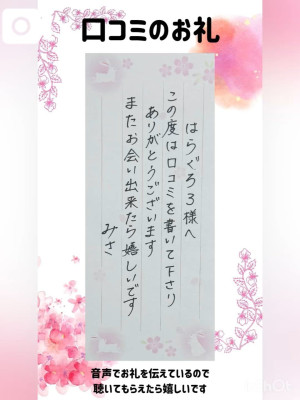 口コミのお礼
はらぐろ3様へ
この度は口コミを書いて下さり
ありがとうございます
またお会い出来たら嬉しいです
みさ
音声でお礼を伝えているので
聴いてもらえたら嬉しいです